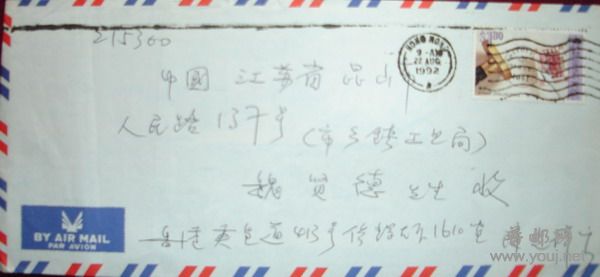 215300
HONG KONG
9 - AM
22 AUG
1992
中國 江苏省 昆山
人民路137号 (市乡镇工业局)
魏賢德 先生 收
BY AIR MAIL
PAR AVION
香港英皇道413号 1610室
www.youj.net